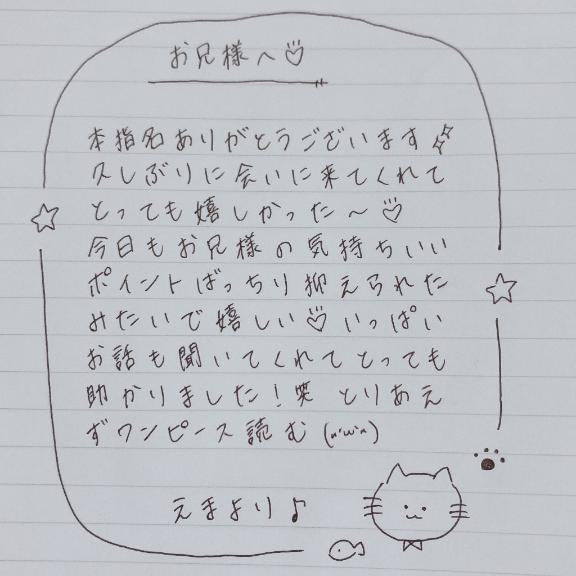 お兄様へ♡
本指名ありがとうございます✨
久しぶりに会いに来てくれて
とっても嬉しかった〜♡
今日もお兄様の気持ちいい
ポイントばっちり抑えられた
みたいで嬉しい♡いっぱい
お話も聞いてくれてとっても
助かりました!笑 とりあえ
ずワンピース読む(*'ω'*)
えまより♪